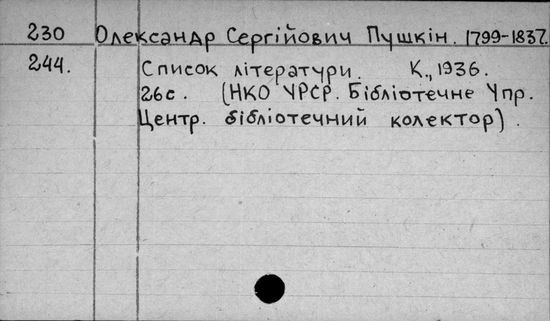 230 Олександр Сергійович Пушкін. 1799-1837.
244. Список літератури. К., 1936.
26с. (НКО УРСР. Бібліотечне Упр.
Центр. бібліотечний колектор).